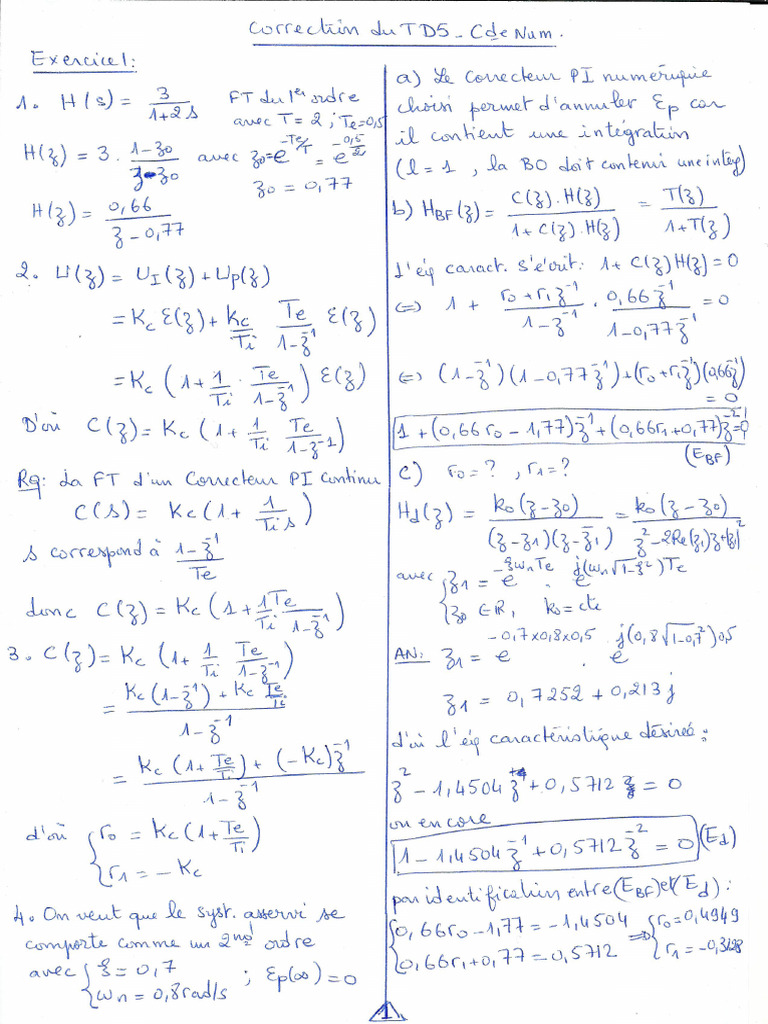 Correction du TD5 - Cde Num.
Exercice 1:
1. H(s) = 3/(1+2s) FT du 1er ordre
avec T = 2 ; Te=0,5
H(z) = 3 . (1-z0)/(z-z0) avec z0 = e^(-Te/T) = e^(-0,5/2)
z0 = 0,77
H(z) = 0,66/(z - 0,77)
2. U(z) = U_I(z) + U_P(z)
= Kc ε(z) + Kc/Ti Te/(1-z^-1) ε(z)
= Kc (1 + 1/Ti . Te/(1-z^-1)) ε(z)
D'où C(z) = Kc (1 + 1/Ti Te/(1-z^-1))
Rq: La FT d'un Correcteur PI continu
C(s) = Kc(1 + 1/(Ti s))
s correspond à (1-z^-1)/Te
donc C(z) = Kc (1 + 1/Ti Te/(1-z^-1))
3. C(z) = Kc (1 + 1/Ti Te/(1-z^-1))
= (Kc(1-z^-1) + Kc Te/Ti)/(1-z^-1)
= (Kc(1+Te/Ti) + (-Kc)z^-1)/(1-z^-1)
d'où { r0 = Kc(1+Te/Ti)
r1 = -Kc
4. On veut que le syst. asservi se
comporte comme un 2nd ordre
avec { ξ = 0,7 ; Ep(∞) = 0
ωn = 0,8 rad/s
a) Le Correcteur PI numérique
choisi permet d'annuler Ep car
il contient une intégration
(l = 1, la BO doit contenir une intég)
b) H_BF(z) = C(z).H(z)/(1+C(z).H(z)) = T(z)/(1+T(z))
L'éq caract. s'écrit: 1 + C(z)H(z) = 0
⇔ 1 + (r0 + r1z^-1)/(1-z^-1) . 0,66z^-1/(1-0,77z^-1) = 0
⇔ (1-z^-1)(1-0,77z^-1)+(r0+r1z^-1)(0,66z^-1)
= 0
1 + (0,66r0 - 1,77)z^-1 + (0,66r1+0,77)z^-2 = 0
(E_BF)
c) r0 = ? , r1 = ?
Hd(z) = k0(z-z0)/((z-z1)(z-z̄1)) = k0(z-z0)/(z^2-2Re(z1)z+|z1|^2)
avec { z1 = e^(-ξωnTe) . e^(j(ωn√(1-ξ²))Te)
z0 ∈ IR, k0 = cte
AN: z1 = e^(-0,7x0,8x0,5) . e^(j(0,8√(1-0,7²))0,5)
z1 = 0,7252 + 0,213j
d'où l'éq caractéristique désirée:
z^2 - 1,4504 z + 0,5712 = 0
ou encore
1 - 1,4504z^-1 + 0,5712z^-2 = 0 (Ed)
par identification entre (E_BF) et (Ed) :
{ 0,66r0 - 1,77 = -1,4504 ⇒ { r0 = 0,4949
0,66r1 + 0,77 = 0,5712 r1 = -0,3128
1